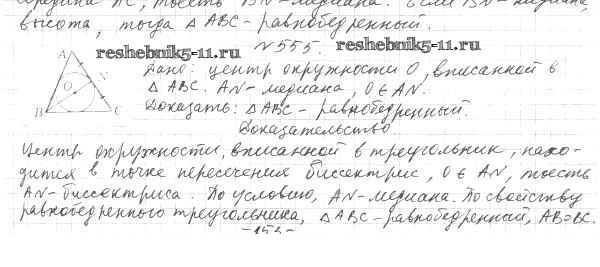 середина AC, тоесть BN-медиана. Если BN-медиана,
высота, тогда △ABC-равнобедренный.
reshebnik5-11.ru
№555.
reshebnik5-11.ru
Дано: центр окружности O, вписанной в
△ABC. AN-медиана, O∈AN.
Доказать: △ABC-равнобедренный.
Доказательство
A
O
N
B
C
Центр окружности, вписанной в треугольник, нахо-
дится в точке пересечения биссектрис, O∈AN, тоесть
AN-биссектриса. По условию, AN-медиана. По свойству
равнобедренного треугольника, △ABC-равнобедренный, AB=BC.
-152-